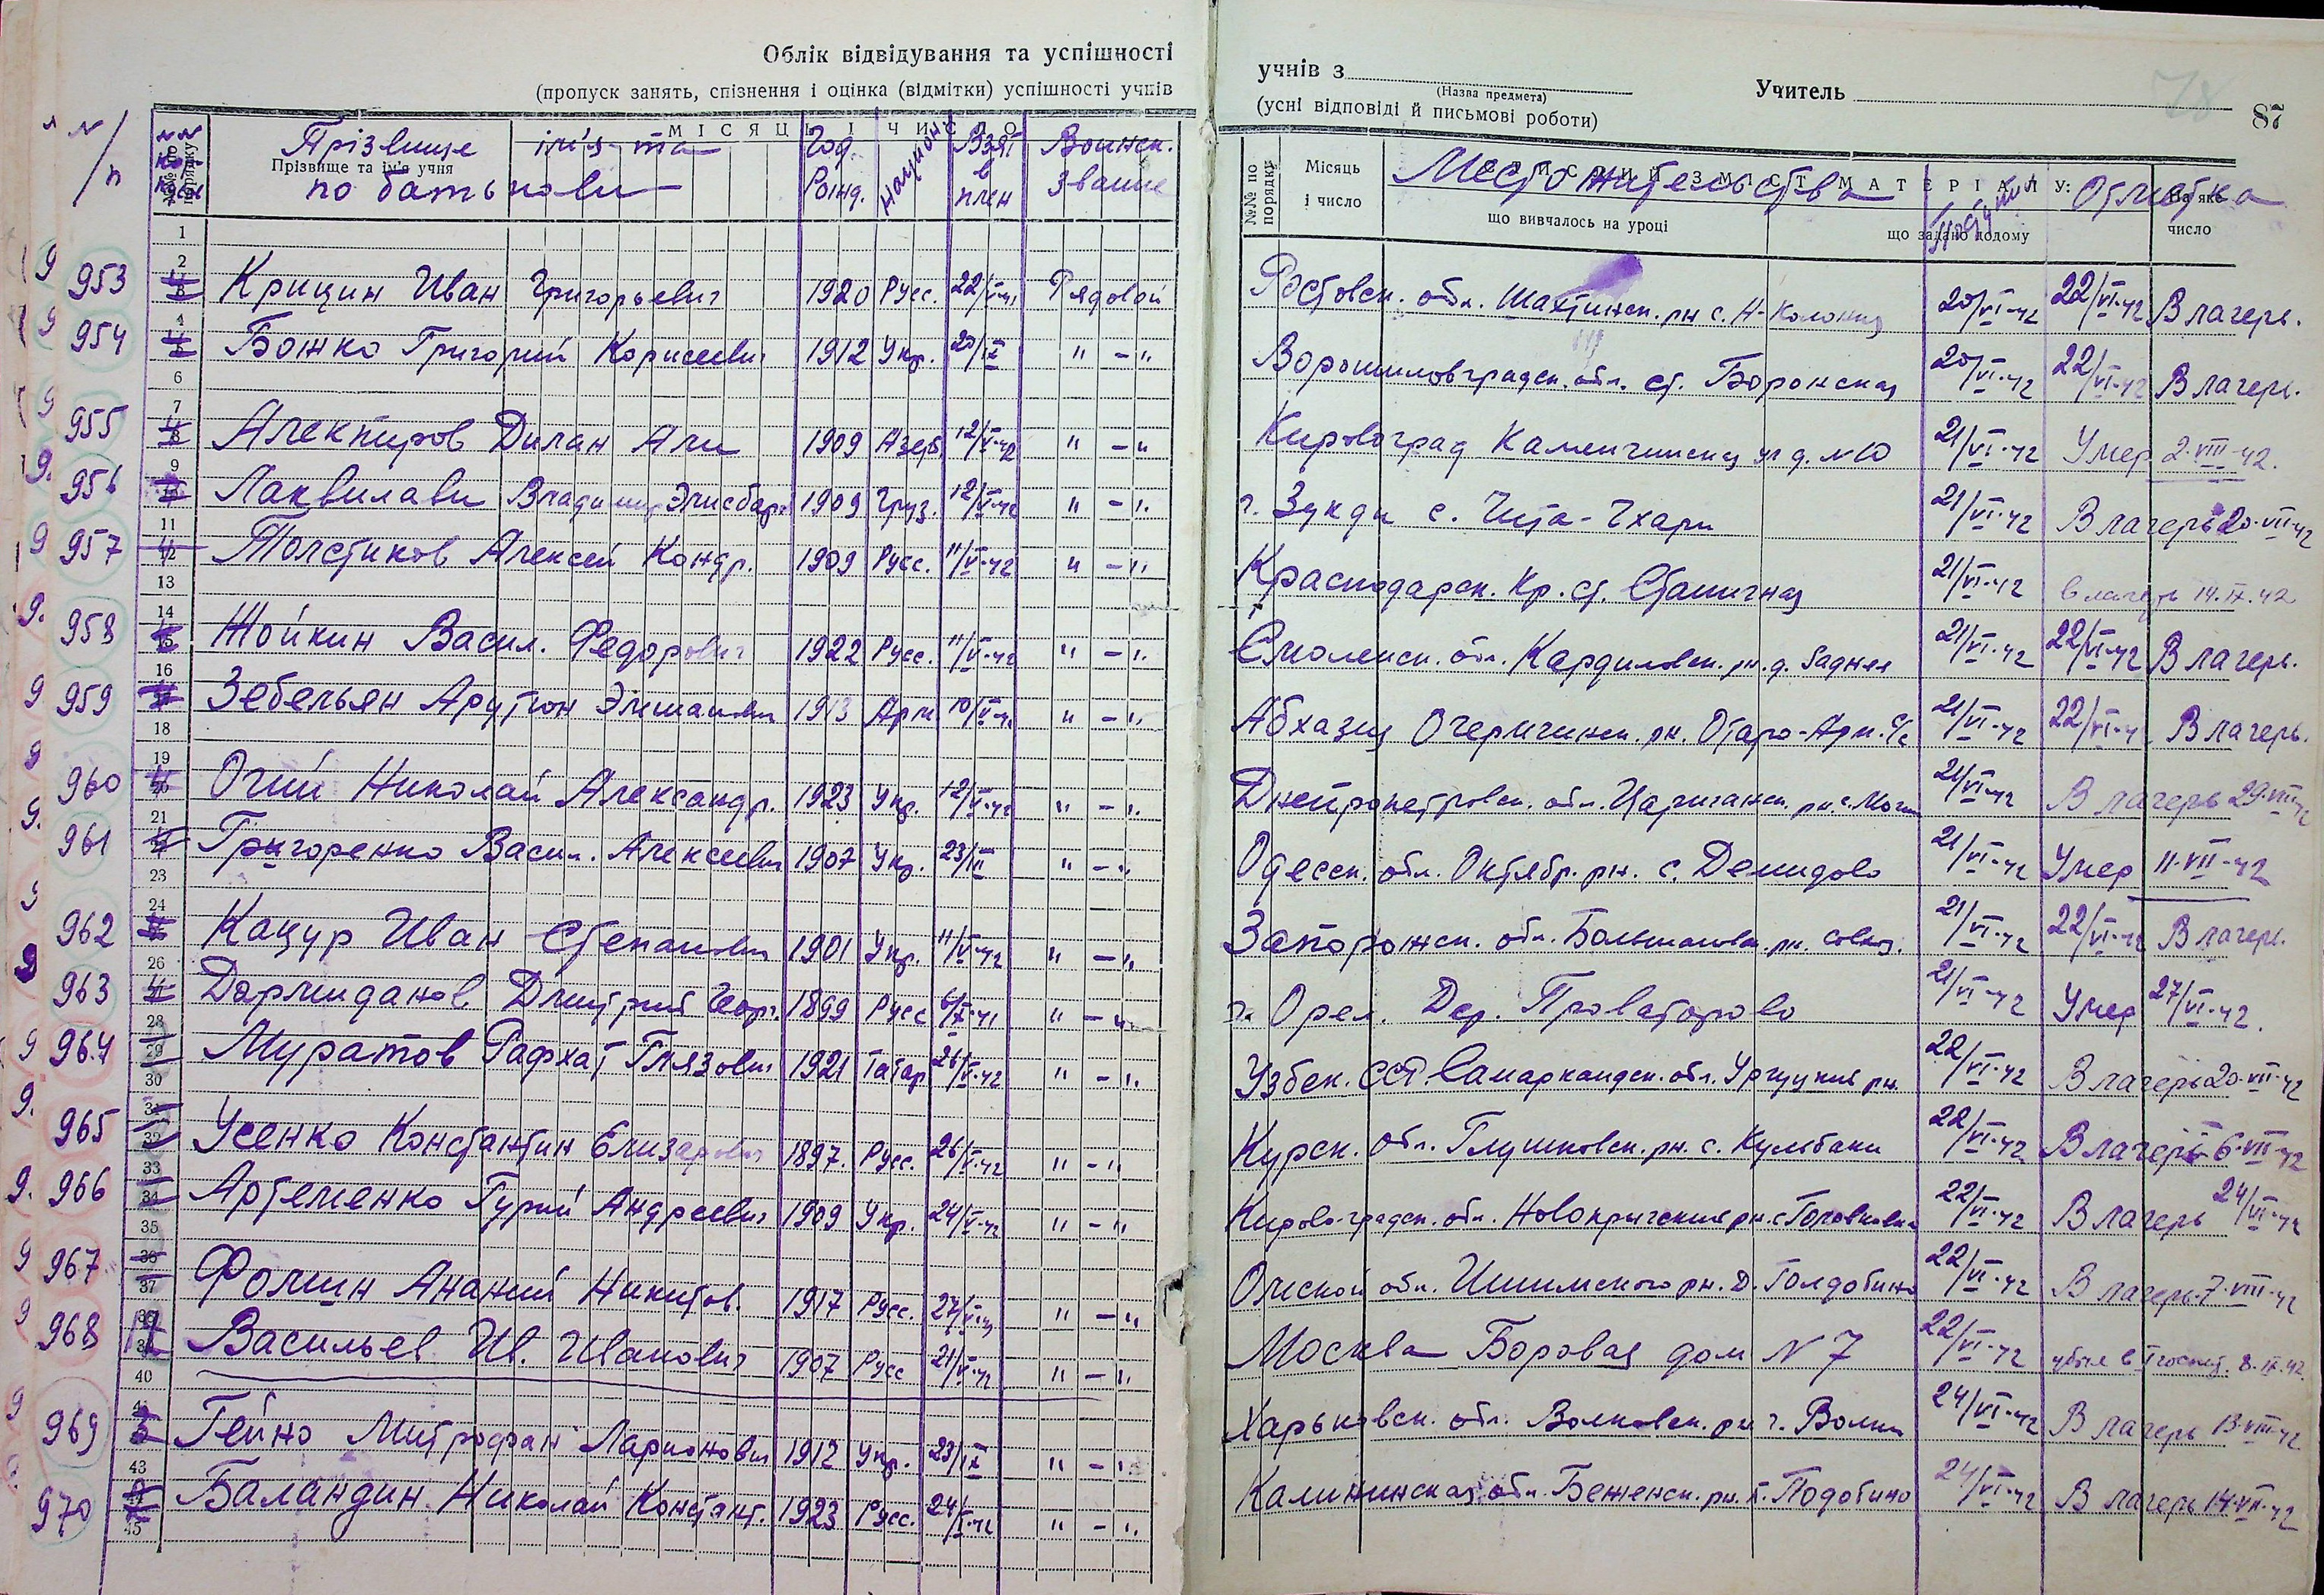 Облік відвідування та успішності
(пропуск занять, спізнення і оцінка (відмітки) успішності учнів
учнів з
(Назва предмета)
Учитель
78
87
(усні відповіді й письмові роботи)
№ п/п
№№ по порядку
МІСЯЦЬ І ЧИСЛО
Прізвище ім'я та по батькові
Прізвище та ім'я учня
Год Рожд.
Национ
Взят в плен
Воинск. звание
№№ по порядку
Місяць і число
Местожительства
що вивчалось на уроці
що задано додому
Отметка
На яке число
953 Крицин Иван Григорьевич 1920 Русс. 22/VI-41 Рядовой Ростовск. обл. Шахтинск. рн с. Н-Колония 20/VI-42 22/VI-42 В лагерь.
954 Божко Григорий Корнеевич 1912 Укр. 20/IX " - " Ворошиловградск. обл. ст. Боронская 20/VI-42 22/VI-42 В лагерь.
955 Алекпиров Дилан Али 1909 Азерб. 12/V-42 " - " Кировоград ул д. №10 21/VI-42 Умер 2-VIII-42.
956 Лаквилави Владимир Элисбар 1909 Груз. 12/V-42 " - " г. Зукди с. Чита-Чхари 21/VI-42 В лагерь 20-VII-42
957 Толстиков Алексей Кондр. 1909 Русс. 11/V-42 " - " Краснодарск. Кр. ст. Станичная 21/VI-42 в лагерь 14.IX.42
958 Жойкин Васил. Федорович 1922 Русс. 11/V-42 " - " Смоленск. обл. Кардиловск. рн. д. Задняя 21/VI-42 22/VI-42 В лагерь.
959 Зебельян Арутюн 1913 Арм 10/V-42 " - " Абхазия Очемчинск. рн. Отаро-Арм. С/с 21/VI-42 22/VI-4 В лагерь.
960 Очий Николай Александр. 1923 Укр. 12/V-42 " - " Днепропетровск. обл. Царичанск. рн. с. 21/VI-42 В лагерь 29-VII-42
961 Григоренко Васил. Алексеевич 1907 Укр. 23/II " - " Одесск. обл. Октябр. рн. с. Демидово 21/VI-42 Умер 11-VII-42
962 Кацур Иван Степанович 1901 Укр. 11/V-42 " - " Запорожск. обл. рн. совхоз. 21/VI-42 22/VI-42 В лагерь.
963 Дармиданов Дмитрий Геор. 1899 Русс 6/X-41 " - " г. Орел. Дер. Проваторово 21/VI-42 Умер 27/VI-42.
964 Муратов Рафхат Глязович 1921 Татар 26/V-42 " - " Узбек. ССР. Самаркандск. обл. Ургуцкий рн. 22/VI-42 В лагерь 20-VII-42
965 Усенко Константин Елизарович 1897. Русс. 26/V-42 " - " Курск. обл. Глушковск. рн. с. Кульбаки 22/VI-42 В лагерь 6-VII-42
966 Артеменко Гурий Андреевич 1909 Укр. 24/V-42 " - " Кирово-градск. обл. рн. с. Головковка 22/VI-42 В лагерь 24/VI-42
967 Фомин Ананий Никитов. 1917 Русс. 27/ " - " Омской обл. Ишимского рн. Д. Голдобино 22/VI-42 В лагерь 7-VIII-42
968 Васильев Ив. Иванович 1907 Русс 21/V-42 " - " Москва Боровая дом N 7 22/VI-42 убыл в I госпит. 8.IX.42
969 Гейно Митрофан Ларионович 1912 Укр. 23/IX " - " Харьковск. обл. Волковск. рн г. Волки 24/VI-42 В лагерь 13-VIII-42
970 Баландин Николай Констант. 1923 Русс. 24/V-42 " - " Калининская обл. Беженск. рн. п. Подобино 24/VI-42 В лагерь 14-VII-42